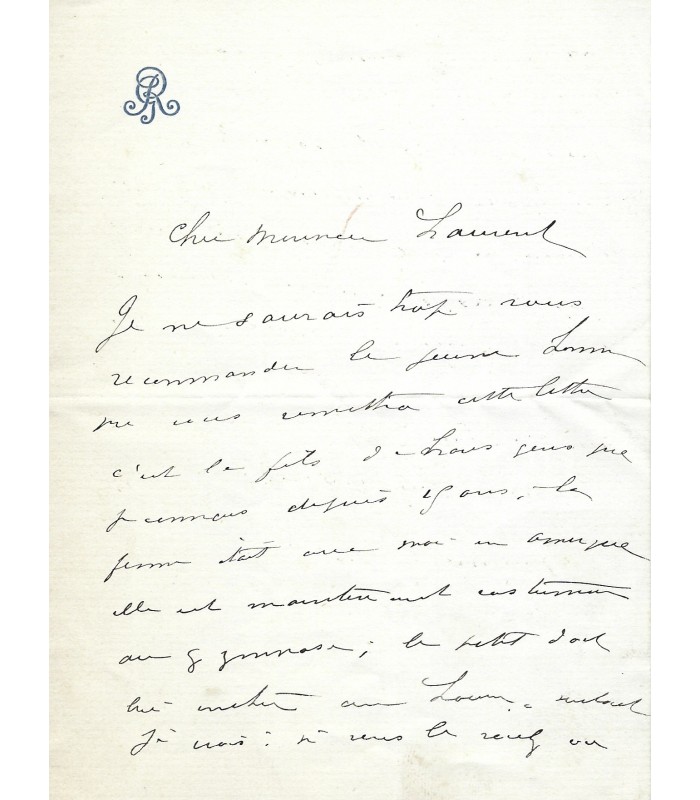 Cher Monsieur Laurent
Je ne saurais trop vous
recommander le jeune
qui vous remettra cette lettre
c'est le fils de braves gens que
je connais depuis 15 ans, la
femme était avec moi en amerique
elle est maintenant costumière
au gymnase ; le petit doit
au
je crois : si vous le voulez ou